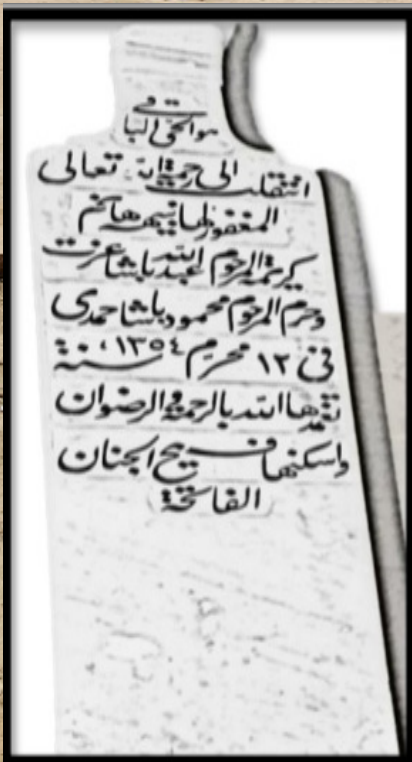 هو الحي الباقي
انتقلت الى رحمة الله تعالى
المغفور لها نبيهه هانم
كريمة المرحوم عبد الله باشا عزت
وحرم المرحوم محمود باشا حمدى
فى ١٢ محرم سنة ١٣٥٤
تغمدها الله بالرحمة والرضوان
واسكنها فسيح الجنان
الفاتحة